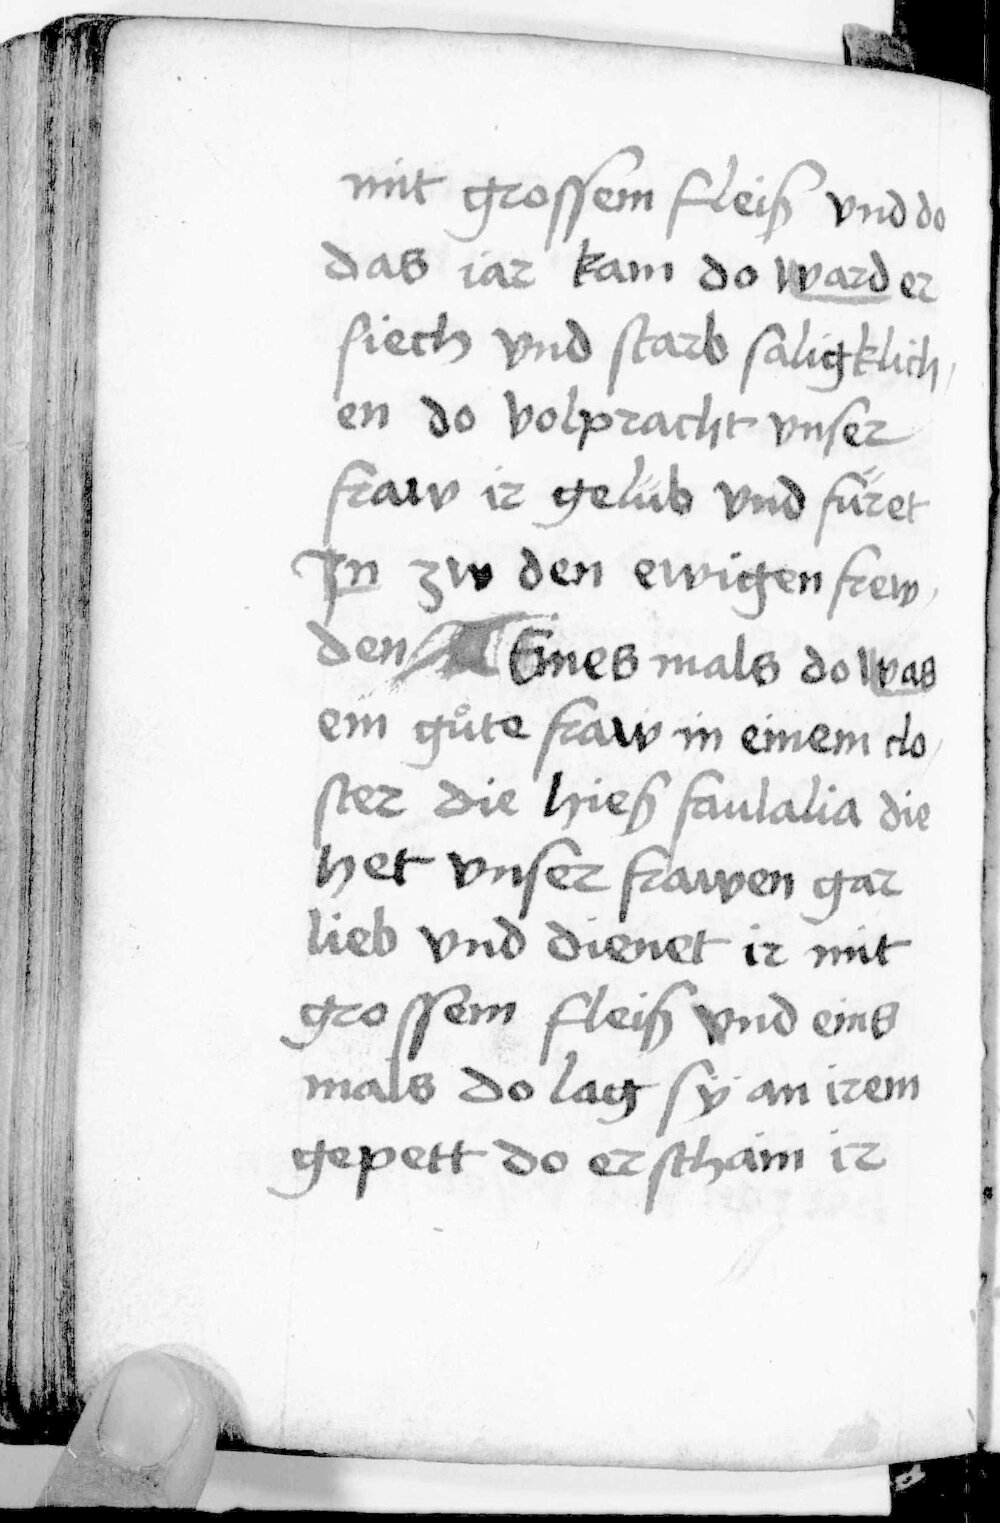 mit grossem fleiß vnd do
das iar kam do ward er
siech vnd starb säligklich,
en do volpracht vnser
fraw ir gelüb vnd füret
In zw den ewigen frew,
den ¶ Eines mals do was
ein gůte fraw in einem clo,
ster die hieß fraulalia die
het vnser frawen gar
lieb vnd dienet ir mit
grossem fleiß vnd eins
mals do lag sÿ an irem
gepett do erscham ir